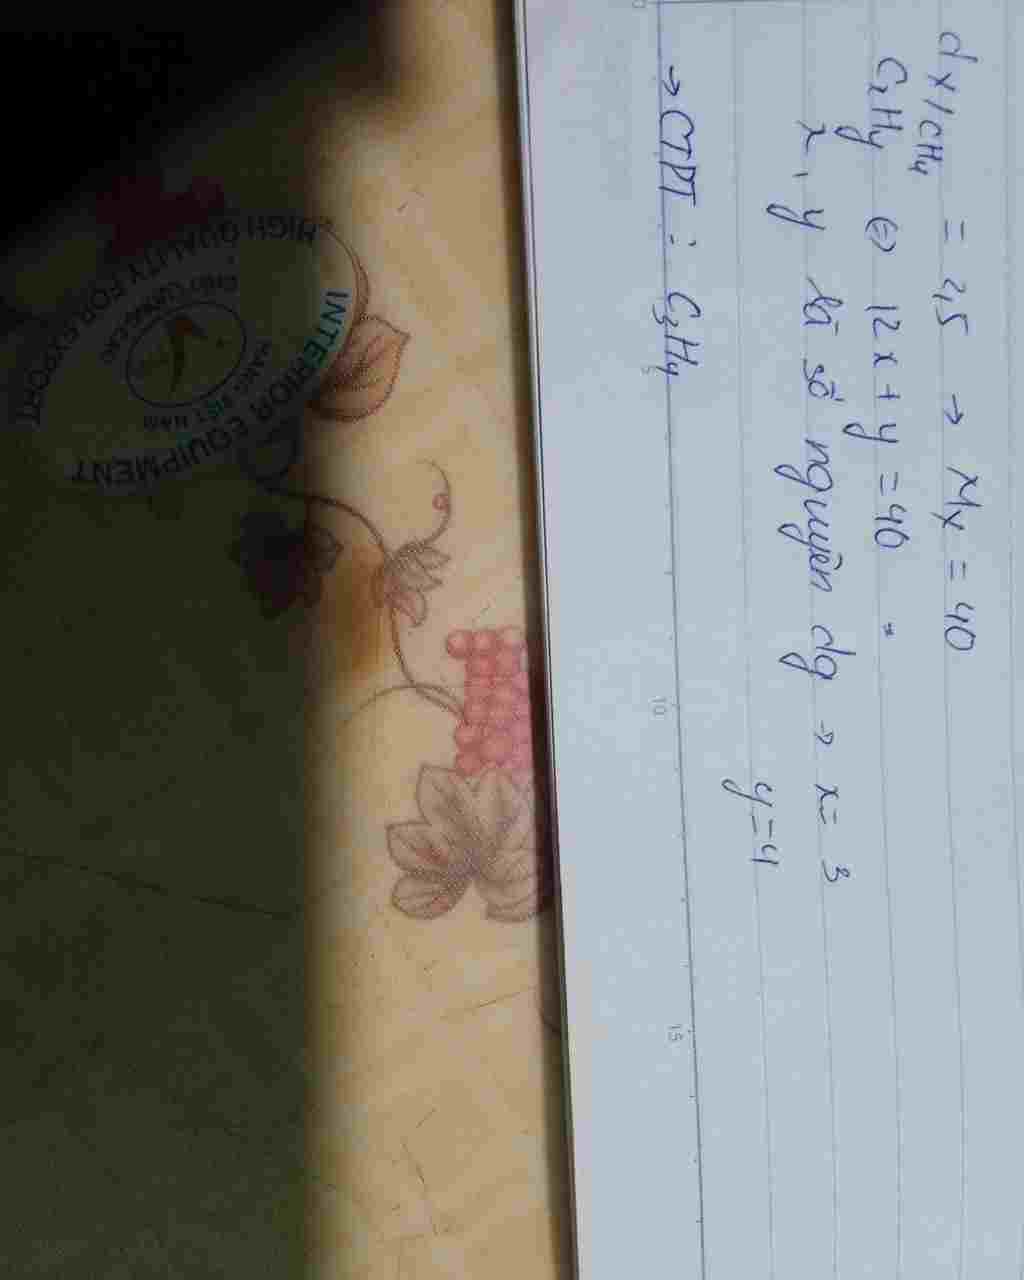 d x/CH4 = 2,5 → Mx = 40
CxHy ⇔ 12x + y = 40
x, y là số nguyên dg → x = 3
y = 4
→ CTPT : C3H4
0
5
10
15
HIGH QUALITY FOR EXPORT
INTERIOR EQUIPMENT